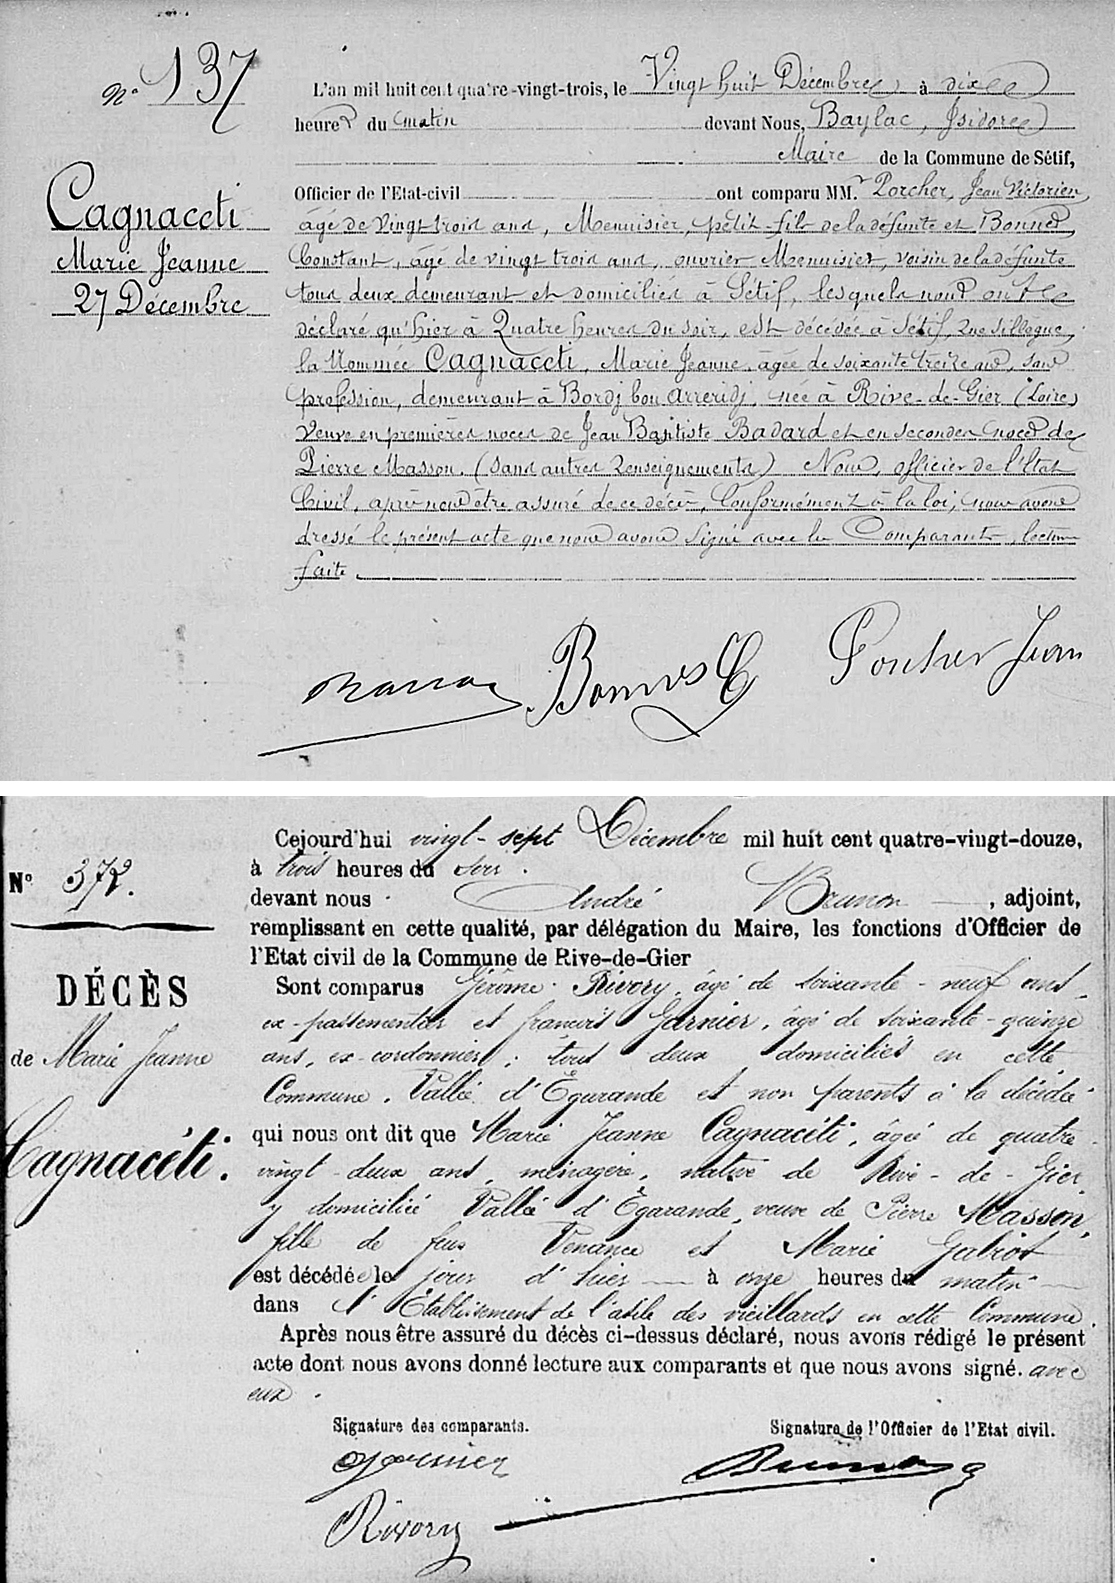 N° 137
Cagnaceti
Marie Jeanne
27 Décembre
L'an mil huit cent quatre-vingt-trois, le Vingt huit Décembre à dix
heures du matin devant Nous, Baylac, Isidore
Maire de la Commune de Sétif,
Officier de l'Etat-civil ont comparu MM. Porcher, Jean Victorien
âgé de Vingt trois ans, Menuisier, petit-fils de la défunte et Bonnes
Constant, âgé de vingt trois ans, ouvrier Menuisier, voisin de la défunte
tous deux demeurant et domiciliés à Sétif, lesquels nous ont
déclaré qu'hier à Quatre heures du soir, est décédée à Sétif, rue Sillègue,
la Nommée Cagnaceti, Marie Jeanne, âgée de soixante treize ans, sans
profession, demeurant à Bordj bou Arreridj, née à Rive-de-Gier (Loire)
Veuve en premières noces de Jean Baptiste Badard et en secondes noces de
Pierre Masson. (Sans autres renseignements) Nous, officier de l'Etat
Civil, après nous être assuré de ce décès, Conformément à la loi, nous avons
dressé le présent acte que nous avons signé avec les Comparants, lecture
faite.
Bonnes C Porcher Jean
N° 372.
DÉCÈS
de Marie Jeanne
Cagnacéti.
Cejourd'hui vingt-sept Décembre mil huit cent quatre-vingt-douze,
à trois heures du soir.
devant nous André Brunon, adjoint,
remplissant en cette qualité, par délégation du Maire, les fonctions d'Officier de
l'Etat civil de la Commune de Rive-de-Gier
Sont comparus Jérôme Rivory, âgé de soixante-neuf ans,
ex-passementier et françois Garnier, âgé de soixante-quinze
ans, ex-cordonnier; tous deux domiciliés en cette
Commune, Vallée d'Égarande et non parents à la décédée
qui nous ont dit que Marie Jeanne Cagnacéti, âgée de quatre
vingt-deux ans, ménagère, native de Rive-de-Gier
y domiciliée Vallée d'Égarande, veuve de Pierre Masson,
fille de feus Venance et Marie Gabriot
est décédée le jour d'hier à onze heures du matin
dans l'Établissement de l'asile des vieillards en cette Commune.
Après nous être assuré du décès ci-dessus déclaré, nous avons rédigé le présent
acte dont nous avons donné lecture aux comparants et que nous avons signé. avec
eux.
Signature des comparants. Signature de l'Officier de l'Etat civil.
Garnier Brunon
Rivory